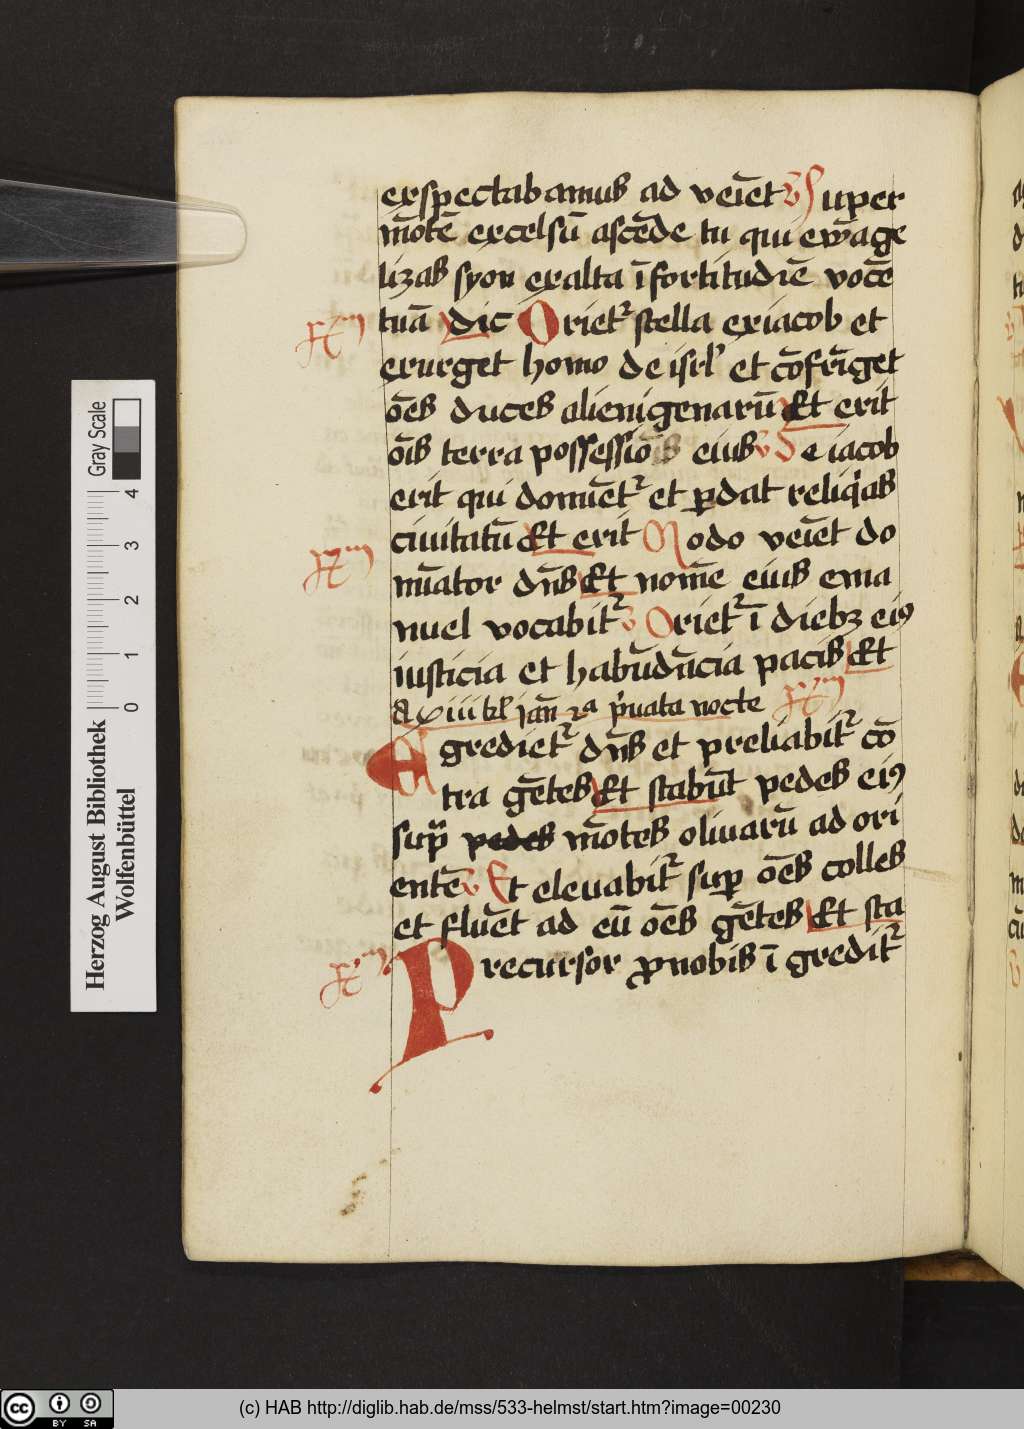 exspectabamus ad veīet ℣ Super
mōtē excelsū ascēde tu qui ewāge
lizas syon exalta ī fortitudīē vocē
tuā dic Orietʳ stella exiacob et
exurget homo de isrl' et cōfrīget
ōēs duces alienigenarū Et erit
ōīs terra possessiō eius ℣ De iacob
erit qui domīetʳ et ꝑdat reliqͥas
ciuitatū Et erit Modo veīet do
mīator dn̄s Et nomē eius ema
nuel vocabitʳ ℣ Orietʳ ī diebꝫ eiꝰ
iusticia et habūdācia pacis Et
jan̄ pͥuata nocte
Egredietʳ dn̄s et preliabitʳ cō
tra gētes Et stabūt pedes eiꝰ
supͣ pedes mōtes oliuarū ad ori
entē ℣ Et eleuabitʳ suꝑ ōēs colles
et fluēt ad eū ōēs gētes Et sta
Precursor ꝓnobis īgreditʳ
Herzog August Bibliothek
Wolfenbüttel
Gray Scale
0 1 2 3 4
(c) HAB http://diglib.hab.de/mss/533-helmst/start.htm?image=00230
cc BY SA